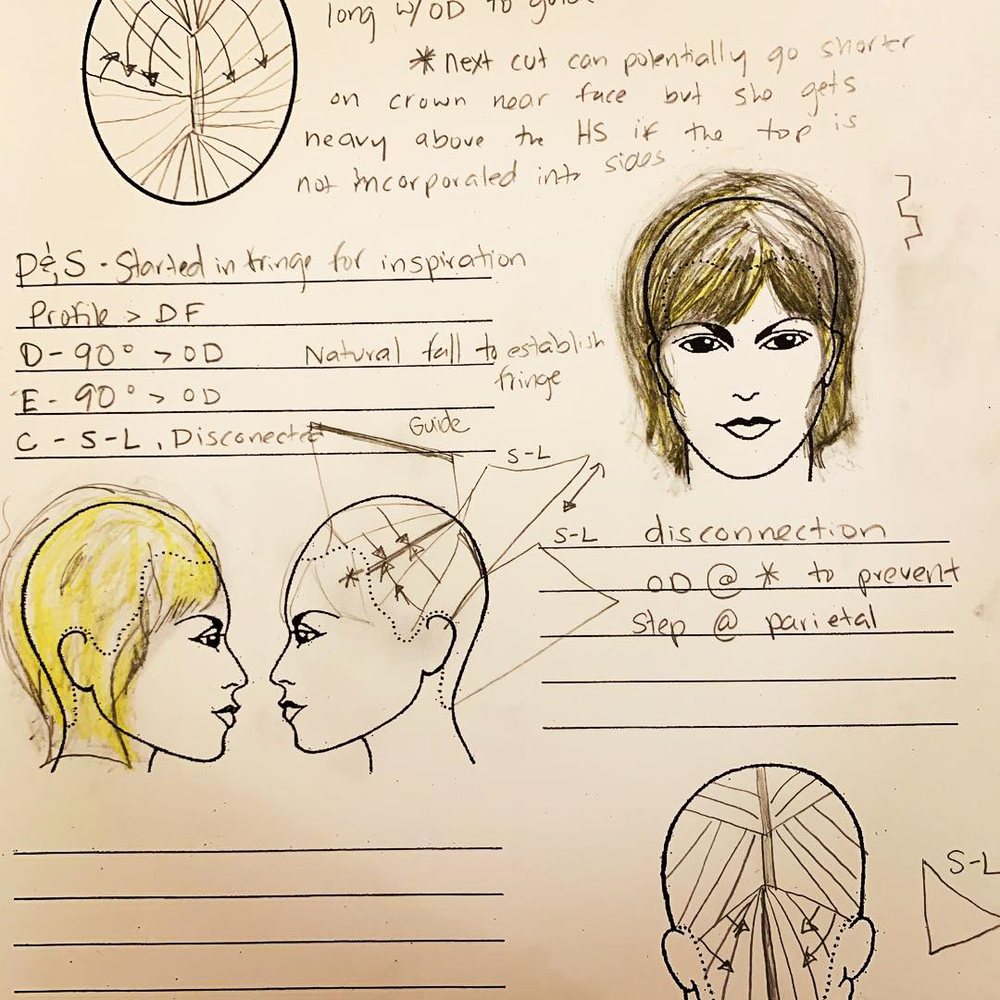 long w/OD to guide
* next cut can potentially go shorter
on crown near face but she gets
heavy above the HS if the top is
not incorporaled into sides
P&S - Started in fringe for inspiration
Profile > DF
D - 90° > OD Natural fall to establish
fringe
E - 90° > OD
C - S-L, Disconected
Guide
S-L
S-L disconnection
OD @ * to prevent
Step @ parietal
S-L